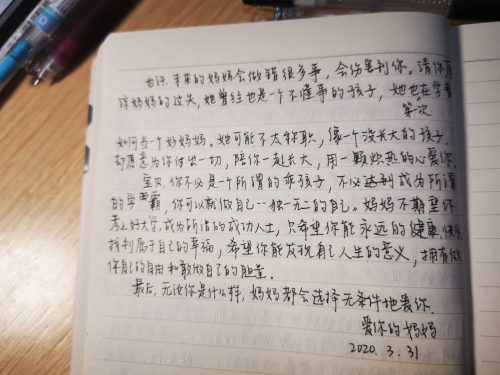 也许未来的妈妈会做错很多事,会伤害到你。请你原
谅妈妈的过失,她曾经也是一个不懂事的孩子,她也在学着
第一次
如何当一个好妈妈。她可能不太称职,像个没长大的孩子,
却愿意为你付出一切,陪你一起长大,用一颗炽热的心爱你。
宝贝,你不必是一个所谓的乖孩子,不必达到成为所谓
的学霸,你可以就做自己··独一无二的自己。妈妈不期望你
考上好大学,成为所谓的成功人生,只希望你能永远的健康快乐
找到属于自己的幸福,希望你能发现自己人生的意义,拥有做
你自己的自由和敢做自己的胆量。
最后,无论你是什么样,妈妈都会选择无条件地爱你.
爱你的妈妈
2020.3.31